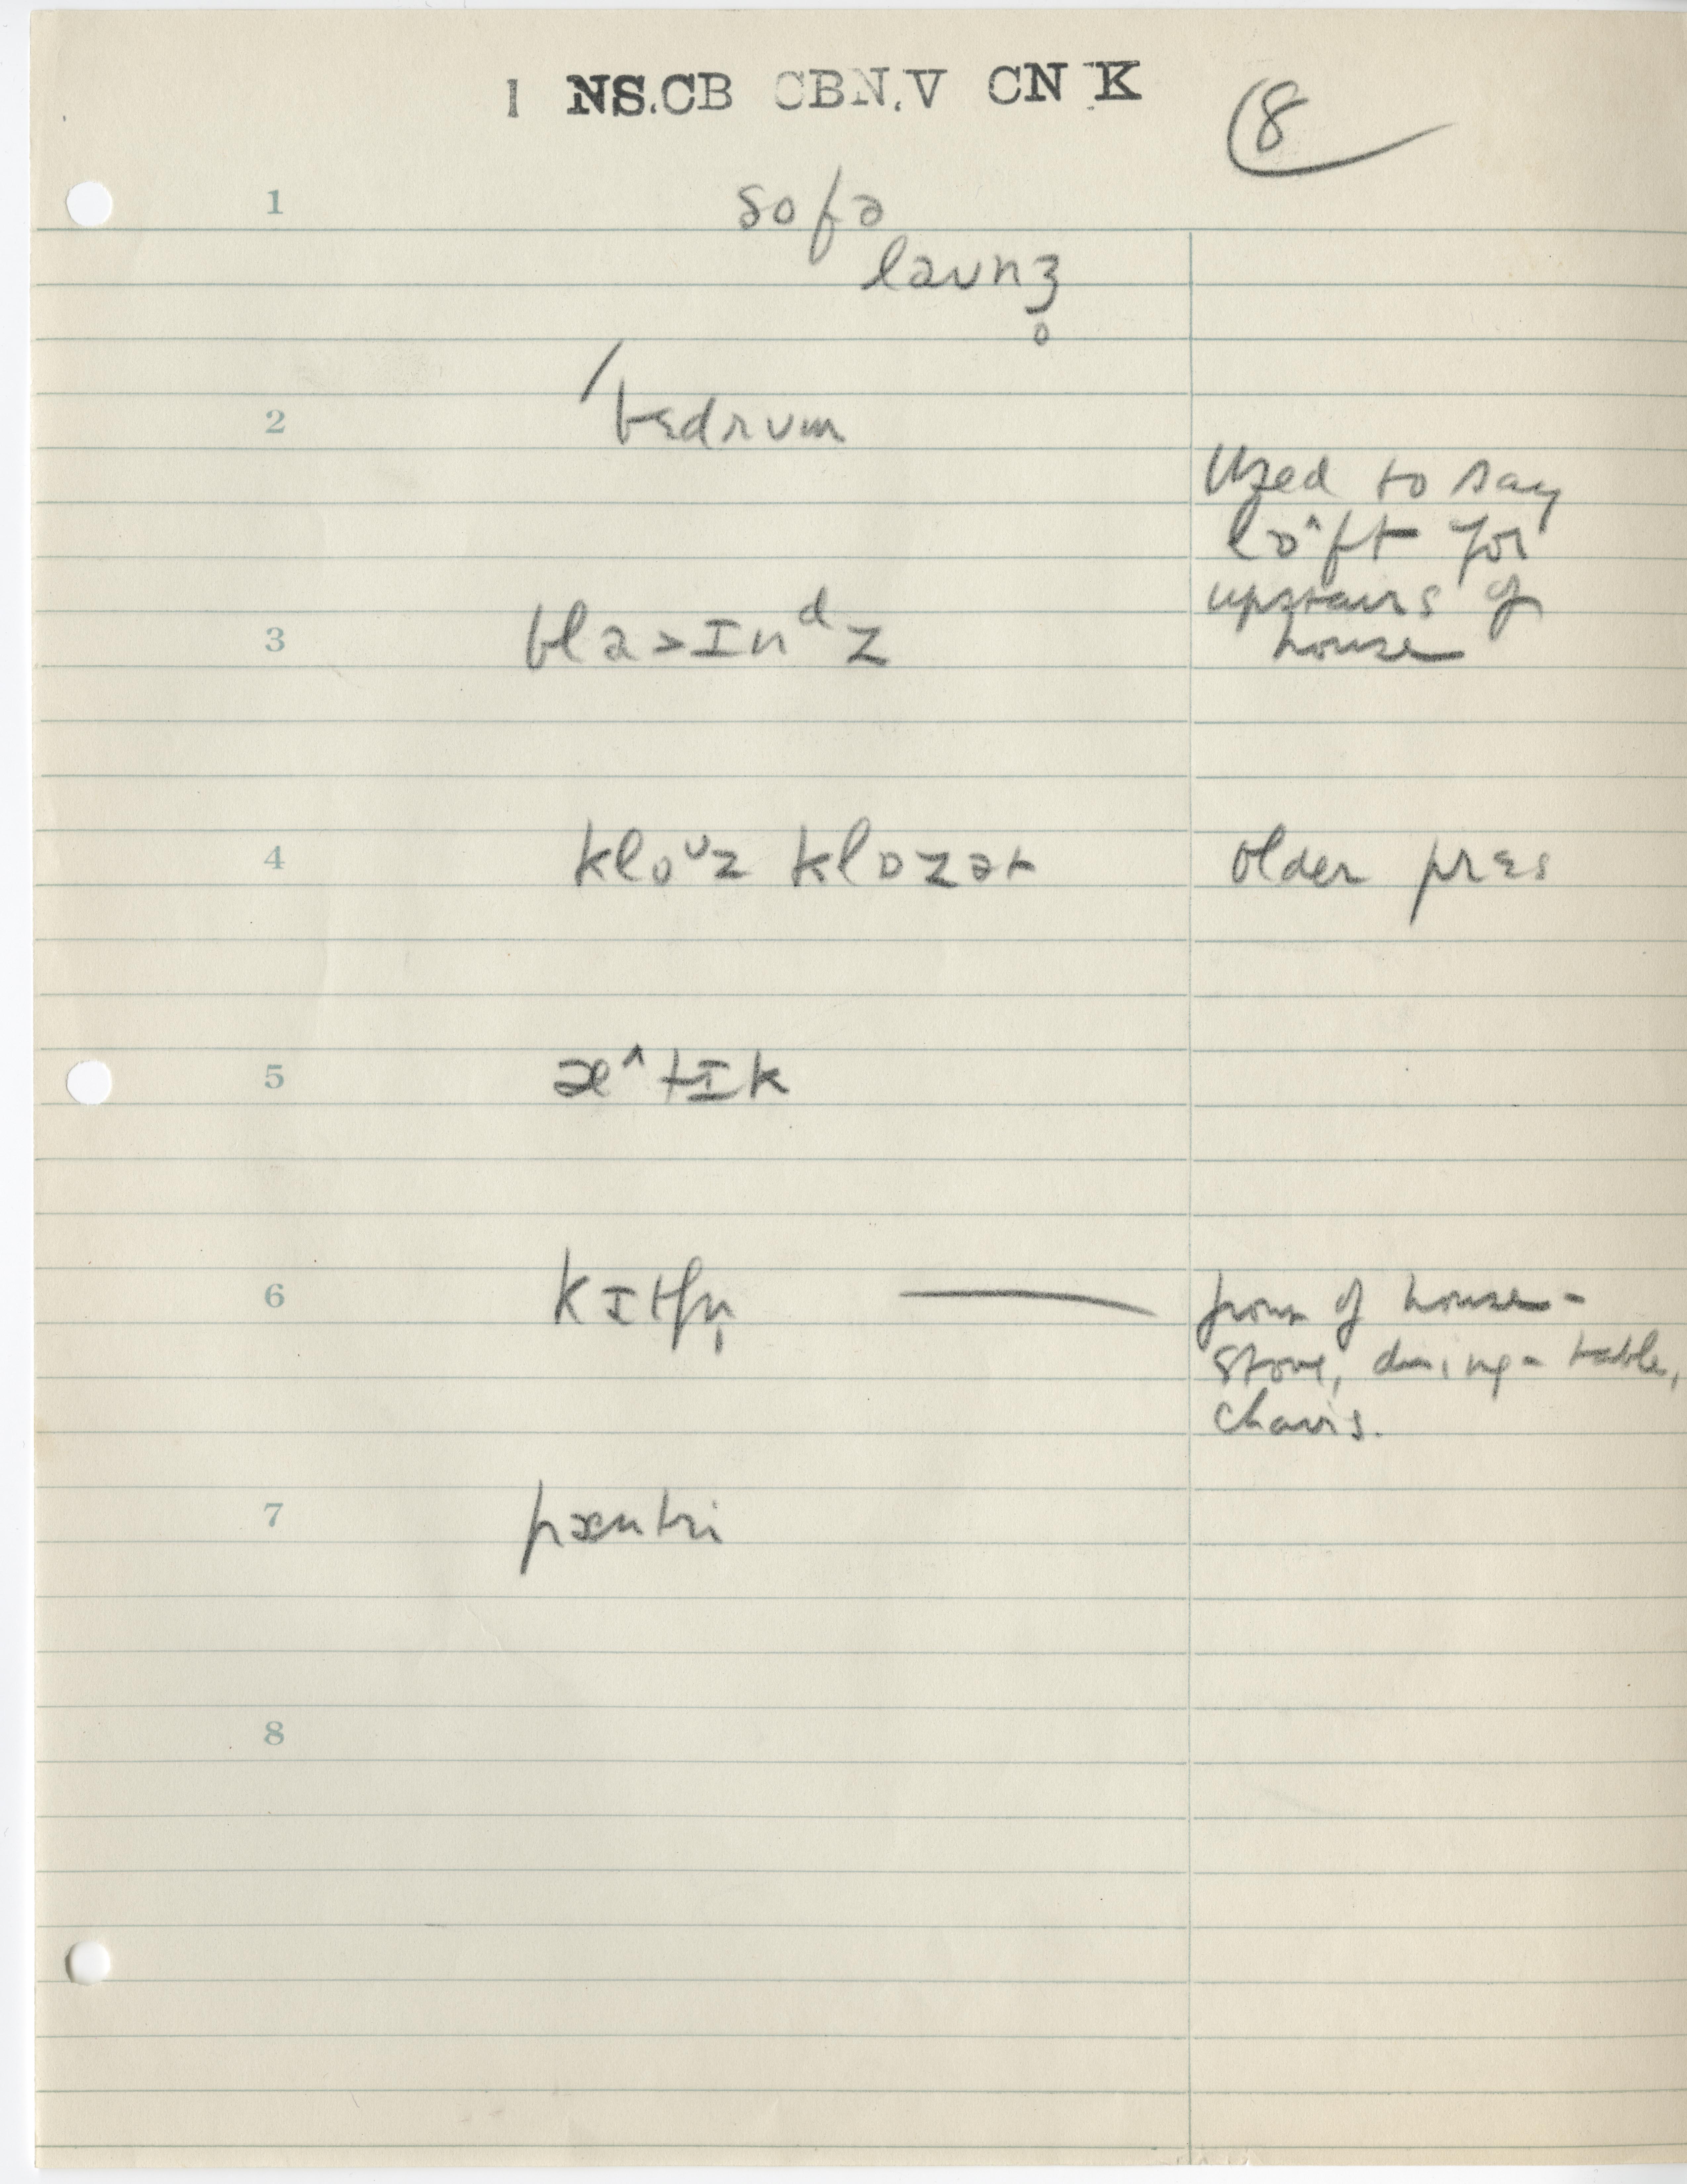 1 NS.CB CBN.V CN K
8
1 sofə
ləʊnʒ̥
2 / bɛdrʊm
Used to say
lɒ^ft for
upstairs of
house
3 bla>ɪnᵈz
4 kloᶷz klɒzət older prɛs
5 æ^tɪk
6 kɪtʃn̩ — of house -
stove, dining-table,
chairs.
7 pæntri
8